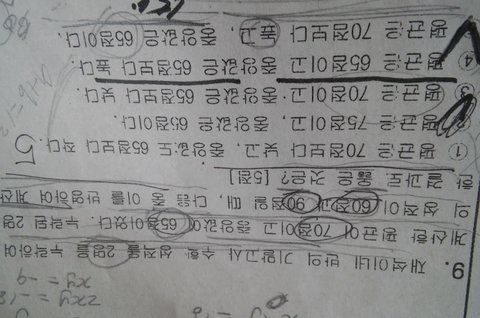 9. 재석이네 반의 기말고사 수학 성적을 2명을 누락하여
계산한 평균이 70점이고 중앙값이 65점이었다. 누락된 2명
의 성적이 60점과 90점일 때, 다음 중 이를 반영하여 계산
한 결과로 옳은 것은? [5점]
① 평균은 70점보다 낮고, 중앙값도 65점보다 작다.
② 평균은 75점이고, 중앙값은 65점이다.
③ 평균은 70점이고, 중앙값은 65점보다 낮다.
④ 평균은 65점이고 중앙값은 65점보다 높다.
평균은 70점보다 높고, 중앙값은 65점이다.
5
xy = -9
2xy = -18